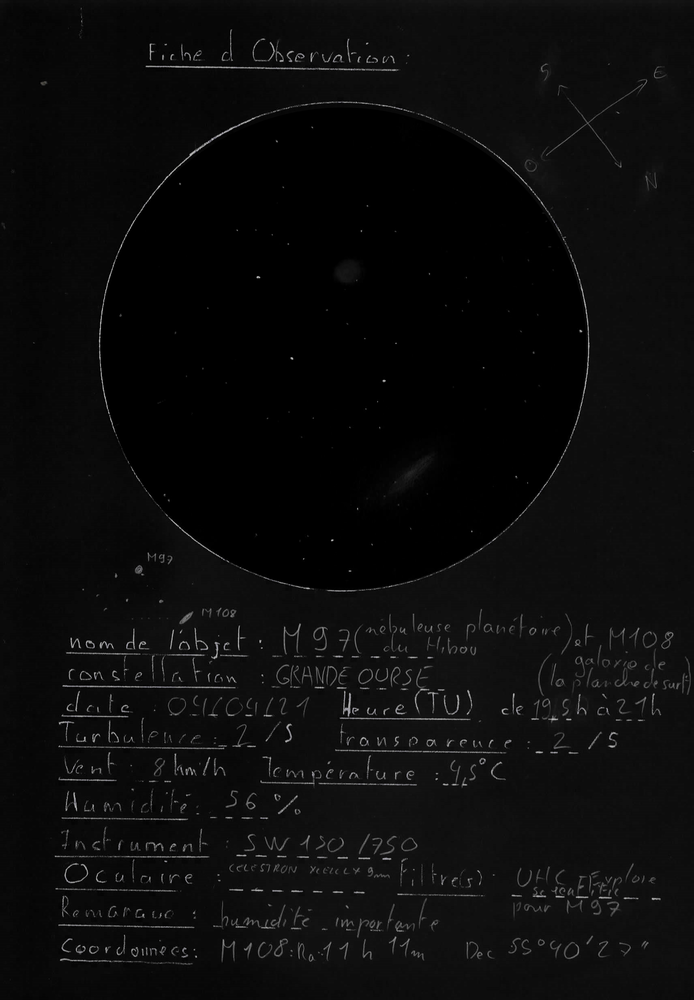 Fiche d Observation :
S E
O N
M97
M108
nom de l'objet : M 97 (nébuleuse planétaire du Hibou) et M108
constellation : GRANDE OURSE (galaxie de la planche de surf)
date : 04/04/21 Heure (TU) de 19,5h à 21h
Turbulence : 2 /5 transparence : 2 /5
Vent : 8 km/h Température : 4,5°C
Humidité : 56 %
Instrument : SW 150 /750
Oculaire : CELESTRON 9mm filtre(s) : UHC Explore scientific
Remarque : humidité importante pour M97
Coordonnées : M108 : Ra : 11 h 11m Dec 55°40'27"